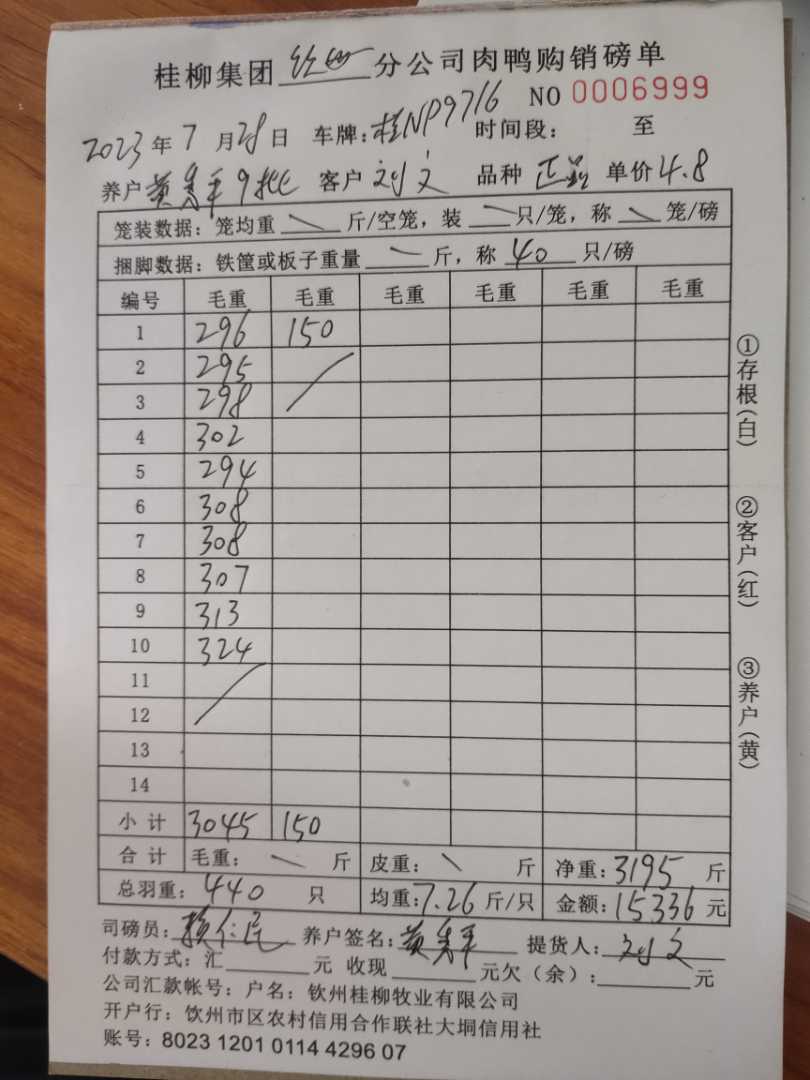 桂柳集团 钦州 分公司肉鸭购销磅单
NO 0006999
2023 年 7 月 28 日 车牌: 桂NP9716 时间段: 至
养户 黄 平 9批 客户 刘文 品种 正品 单价 4.8
笼装数据: 笼均重 \ 斤/空笼, 装 \ 只/笼, 称 \ 笼/磅
捆脚数据: 铁筐或板子重量 \ 斤, 称 40 只/磅
编号 毛重 毛重 毛重 毛重 毛重 毛重
1 296 150
2 295
3 298
4 302
5 294
6 308
7 308
8 307
9 313
10 324
11
12
13
14
小计 3045 150
合计 毛重: \ 斤 皮重: \ 斤 净重: 3195 斤
总羽重: 440 只 均重: 7.26 斤/只 金额: 15336 元
司磅员: 赖仁 养户签名: 黄 平 提货人: 刘文
付款方式: 汇 元 收现 元欠(余): 元
公司汇款帐号: 户名: 钦州桂柳牧业有限公司
开户行: 饮州市区农村信用合作联社大垌信用社
账号: 8023 1201 0114 4296 07
①存根(白)
②客户(红)
③养户(黄)